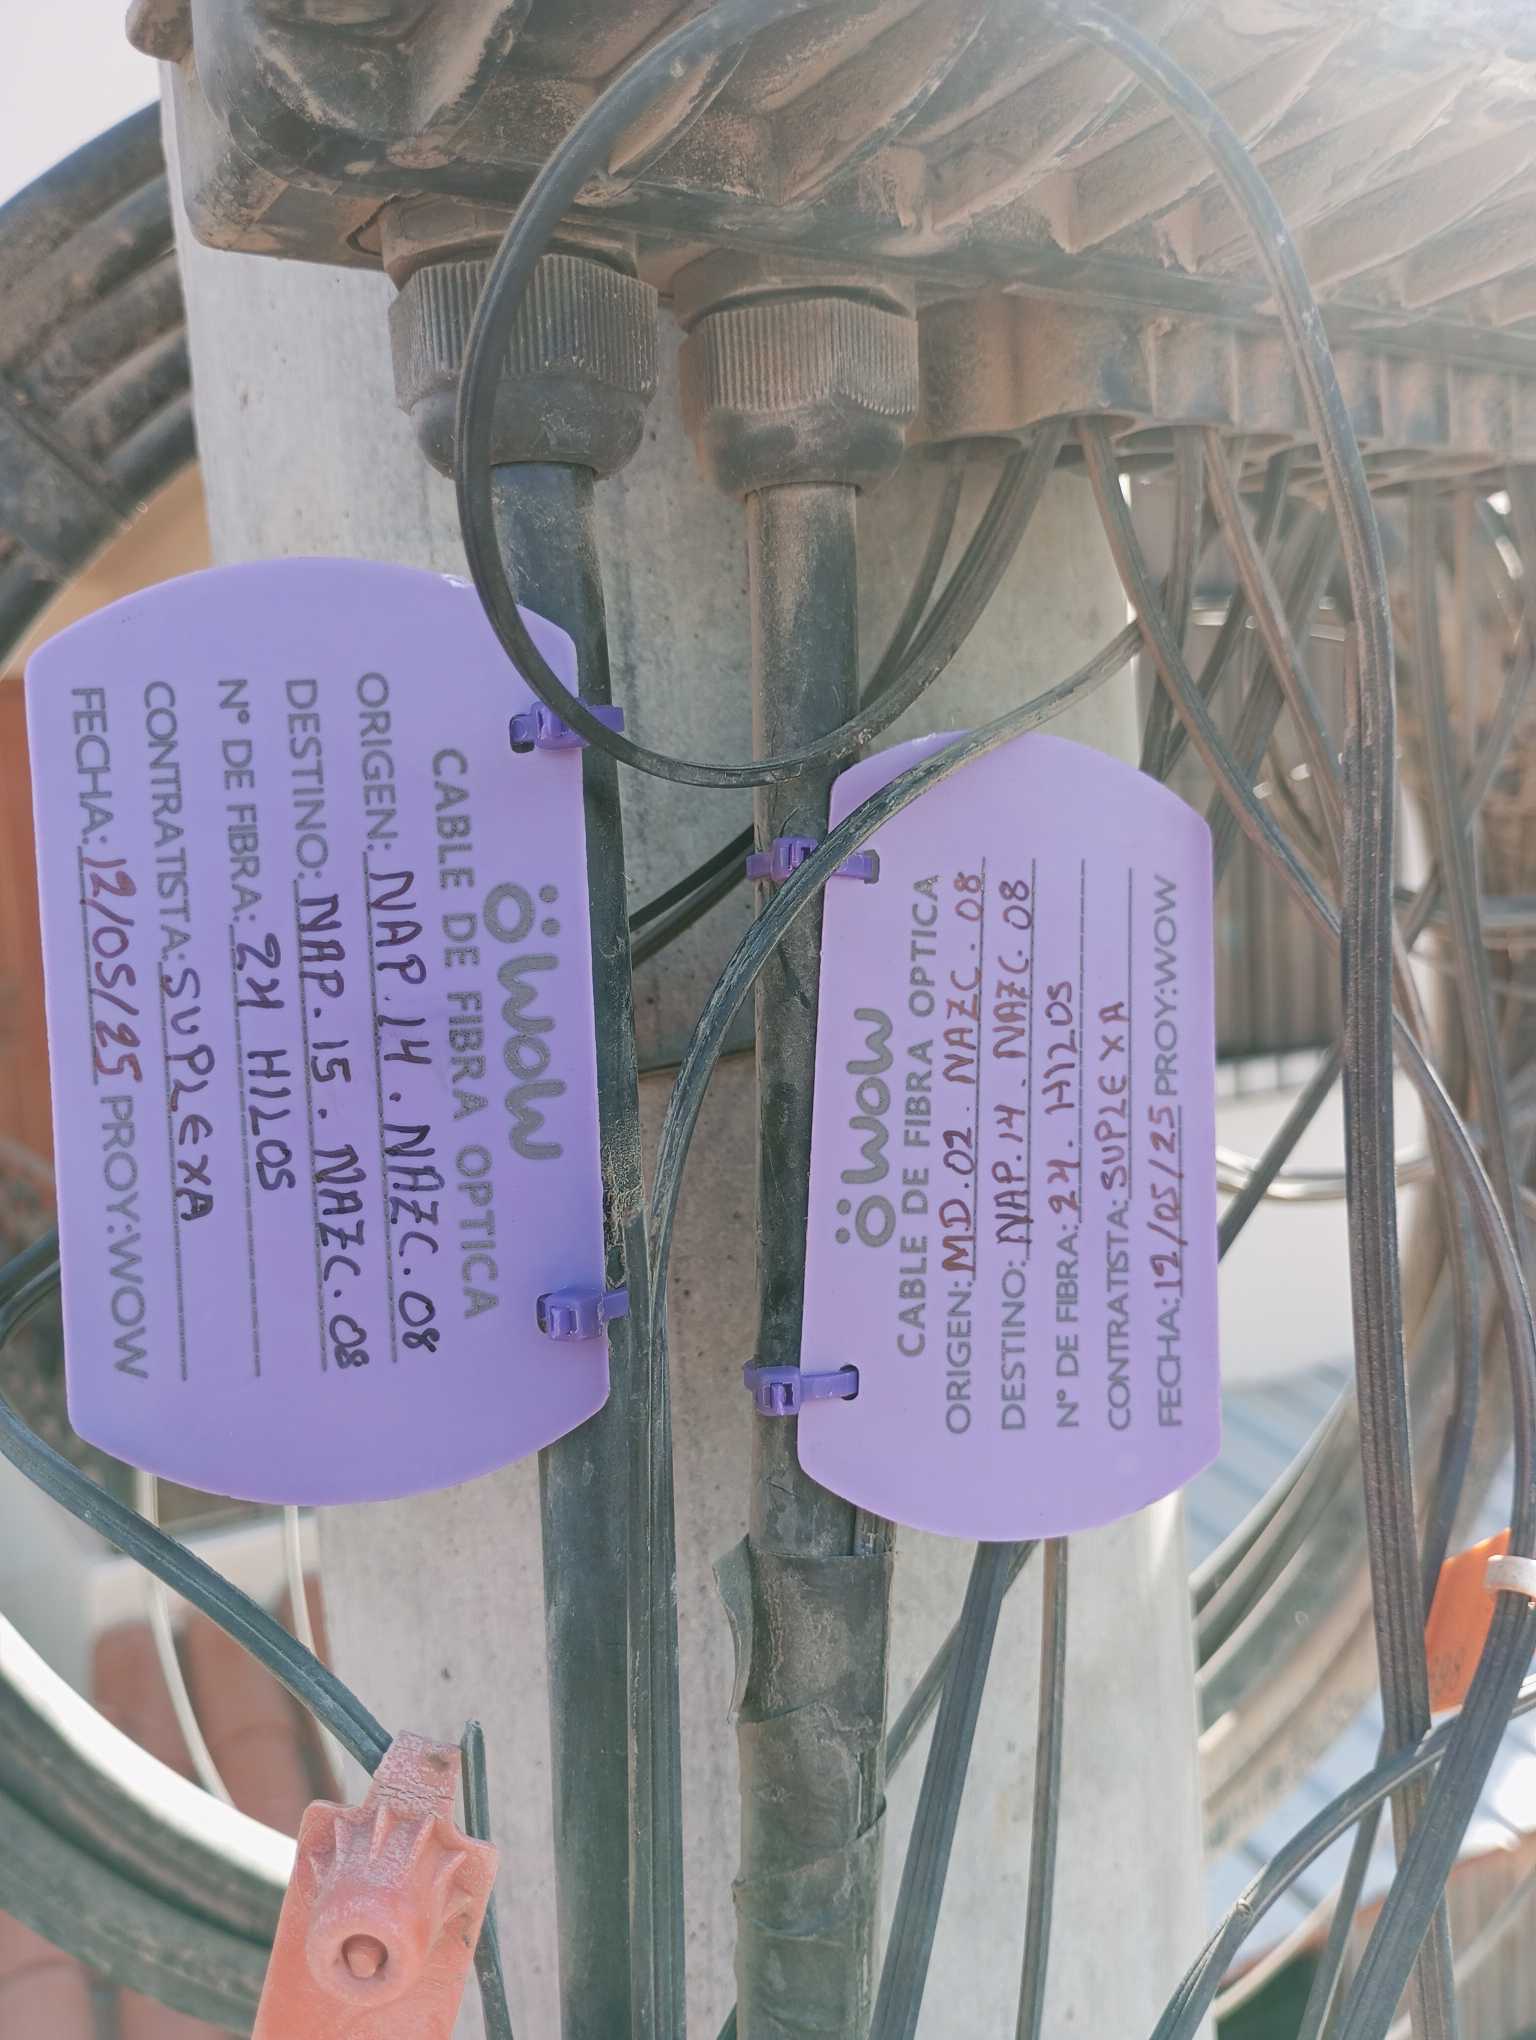 wow
CABLE DE FIBRA OPTICA
ORIGEN: NAP.14.NAZC.08
DESTINO: NAP.15.NAZC.08
N° DE FIBRA: 24 HILOS
CONTRATISTA: SUPLEXA
FECHA: 12/05/25 PROY:WOW
wow
CABLE DE FIBRA OPTICA
ORIGEN: MD.02.NAZC.08
DESTINO: NAP.14.NAZC.08
N° DE FIBRA: 24.HILOS
CONTRATISTA: SUPLEXA
FECHA: 12/05/25 PROY:WOW